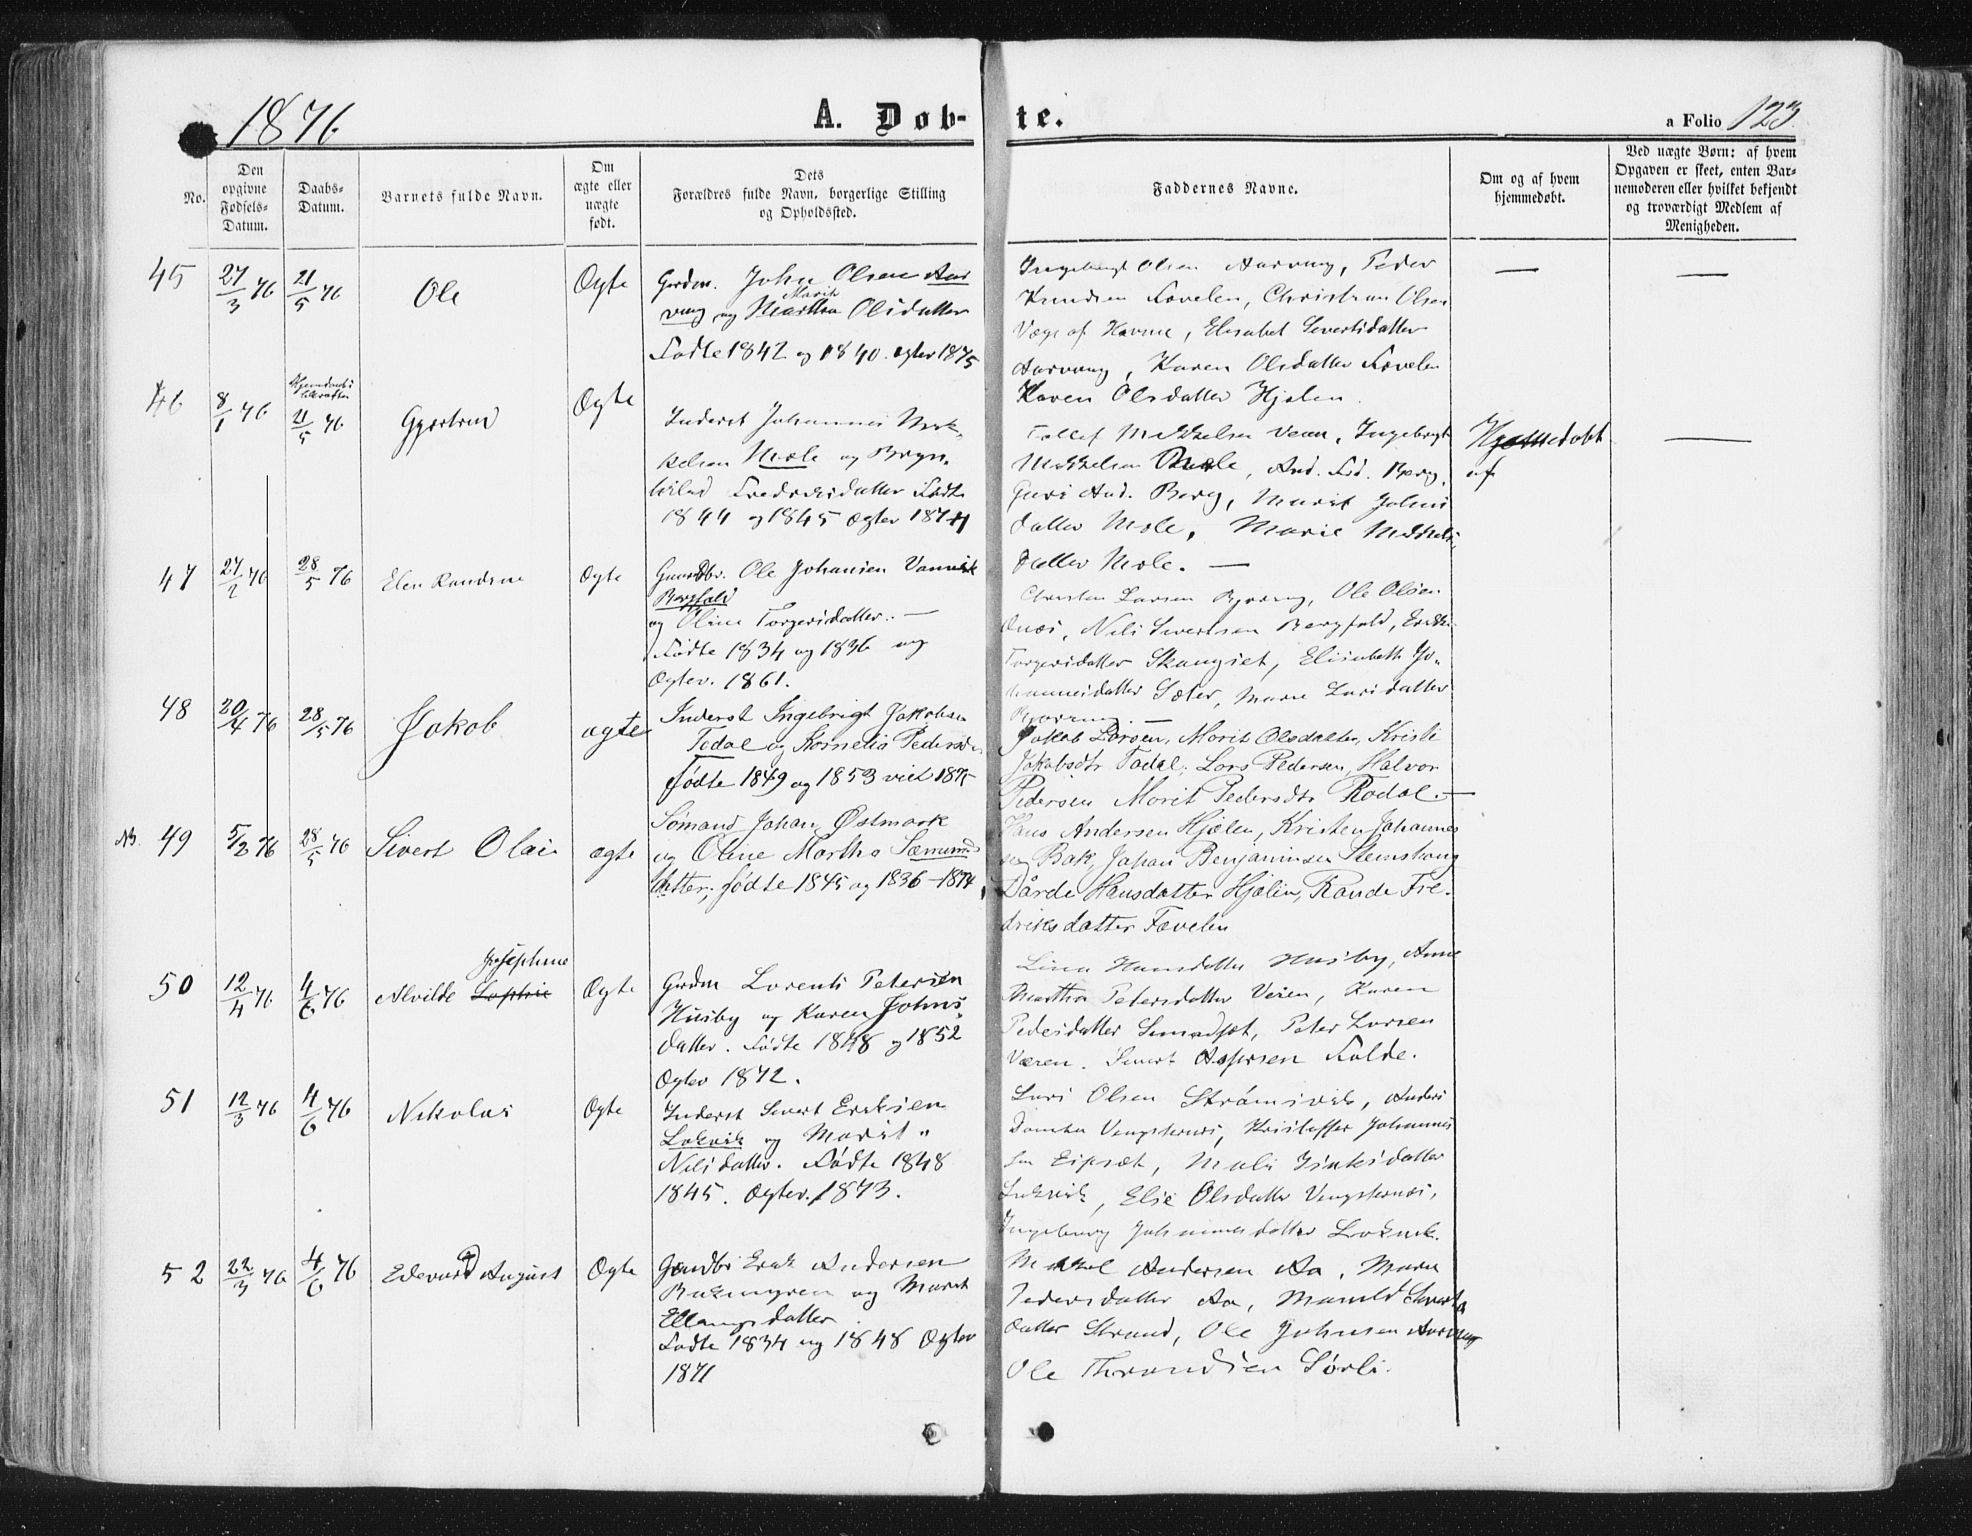 1876
A. Døb-
te.
a Folio 123.
No.
Den
opgivne
Fødsels-
Datum.
Daabs-
Datum.
Barnets fulde Navn.
Om
ægte eller
uægte
født.
Dets
Forældres fulde Navn, borgerlige Stilling
og Opholdssted.
Faddernes Navne.
Om og af hvem
hjemmedøbt.
Ved uægte Børn: af hvem
Opgaven er skeet, enten Bar-
nemoderen eller hvilket bekjendt
og troværdigt Medlem af
Menigheden.
45
27/3 76
21/5 76
Ole
Ægte
Grdm. John Olsen Aar
vaag og Martha Olsdatter
Marit
Fødte 1842 og 1840. ægtev 1875
Ingebrigt Olsen Aarvaag, Peder
Knudsen Fævelen, Christian Olsen
Væge af Havnæ, Elisabet Sivertsdatter
Aarvaag, Karen Olsdatter Fævelen
Karen Olsdatter Hjelen.
46
8/1 76
21/5 76
Gjertrud
Ægte
Inderst Johannes Mik-
kelsen Mæle og Bryn-
hild Fredriksdatter Fødte
1844 og 1845 Ægtev 1874
Tollef Mikkelsen Veum, Ingebrigt
Mikkelsen Mæle, And. Fid. Berg,
Guri And. Berg, Marit Johns
datter Mæle, Marie Mikkels
datter Mæle. —
Hjemmedøbt
af
47
27/2 76
28/5 76
Elen Randine
Ægte
Gaardbr. Ole Johansen Vannvik
Bergfald
og Oline Torgersdatter. —
Fødte 1834 og 1836 og
Ægtev. 1861.
Christen Larsen Bjørvaag, Ole Olsen
Onæs, Nils Sivertsen Bergfald, Erik
Torgersdatter Skaugset, Elisabeth Jo-
hannesdatter Sæter, Marie Larsdatter
Bjørvaag. —
48
30/4 76
28/5 76
Jakob
ægte
Inderst Ingebrigt Jakobsen
Todal og Kornelia Pedersdr
fødte 1849 og 1853 viet 1875
Jakob Larsen, Marit Olsdatter, Kristi
Jakobsdtr Todal, Lars Pedersen, Halvor
Pedersen Marit Pedersdtr Rodal. —
NB. 49
5/2 76
28/5 76
Sivert Olai
ægte
Sømand Johan Østmark
og Oline Martha Sæmunds
datter, fødte 1845 og 1836 – 1874,
Hans Andersen Hjælen, Kristen Johannes
sen Bak, Johan Benjaminsen Stemshaug
Dårde Hansdatter Hjælen, Rande Fre-
driksdatter Fævelen
50
12/4 76
4/6 76
Josephine
Alvilde Sophie
Ægte
Grdm Lorents Petersen
Husby og Karen Johns-
datter. Fødte 1848 og 1852
Ægtev 1872.
Lina Hansdatter Husby, Anne
Martha Petersdatter Veien, Karen
Pedersdatter Smedset, Peter Larsen
Væren. Sivert Aspesen Folde.
51
12/3 76
4/6 76
Nikolai
Ægte
Inderst Sivert Eriksen
Lokvik og Marit
Nilsdatter. Fødte 1848
1845. Ægtev. 1873.
Lars Olsen Strømsvik, Anders
Vengsternæs, Kristoffer Johannes
sen Eipsæt, Mali Isaksdatter
Lukvik, Elie Olsdatter Vengsternæs,
Ingeborg Johannesdatter Lokvik.
52
22/3 76
4/6 76
Edevard August
Ægte
Gaardbr Erik Andersen
Bakemyren og Marit
Ellingsdatter
Fødte 1834 og 1848 Ægtev
1871
Mikkel Andersen Aa, Maren
Pedersdatter Aa, Marild Siverts
datter Strand, Ole Johnsen Aarvaag
Ole Throndsen Sørli.